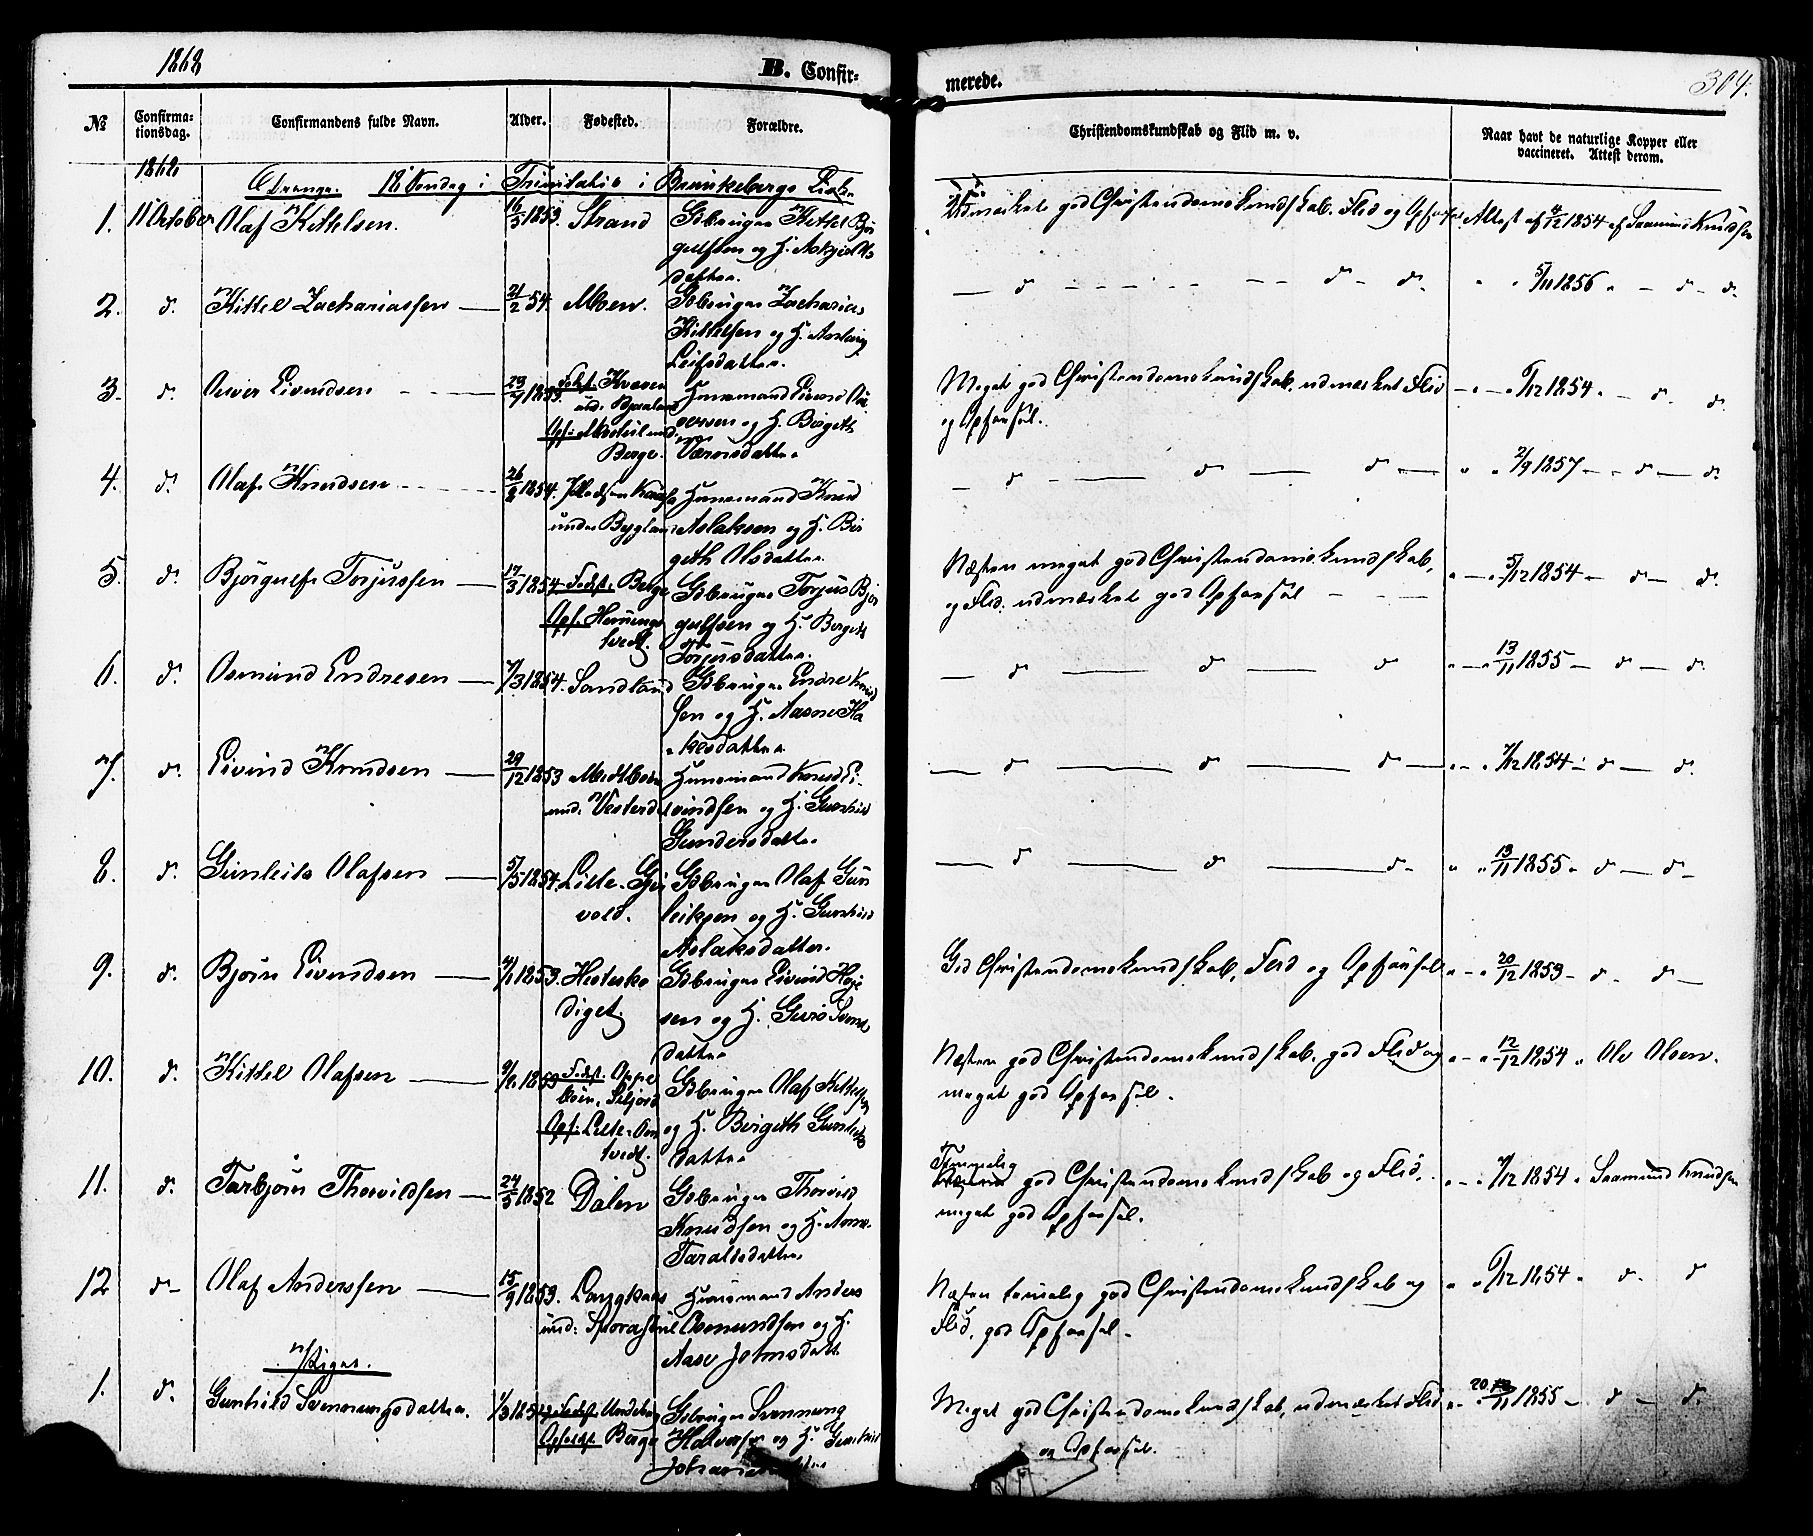 1868
B. Confir-
merede.
304.
№
Confirma-
tionsdag.
Confirmandens fulde Navn.
Alder.
Fødested.
Forældre.
Christendomskundskab og Flid m. v.
Naar havt de naturlige Kopper eller
vaccineret. Attest derom.
1868
Drenge. 18 Søndag i Trinitatis i Brunkebergs Kirke
1. 11 October Olaf Kittelsen. 16/5 1853. Strand Gbruger Kittel Bjør
gulfsen og H.
datter.
Udmærket god Christendomskundskab, Flid og Opførsel Attest af 4/12 1854 af Saamund Knudsen
2. d. Kittel Zachariassen 21/2 54. Moen. Gbruger Zacharias
Kittelsen og H. Aslaug
Leifsdatter.
d d d 5/11 1856 d d
3. d. Eivindsen 23/9 1853. Fødst. Kvaven
und.
Opf.
Berge.
Huusmand Eivind
og H. Birgith
datter
Meget god Christendomskundskab, udmærket Flid
og Opførsel.
1854 d. d.
4. d. Olaf Knudsen 26/2 1854.
under Bygland
Huusmand Knud
Aslaksen og H. Bir
geth Olsdatter
d d d 2/9 1857 d d
5. d. Bjørgulf Torjussen 17/3 1854 Fødst. Berge
Opf. Hemings
tvedt.
Gbruger Torjus Bjør
gulfsen og H. Bergith
Torjusdatter.
Næsten meget god Christendomskundskab,
og Flid, udmærket god Opførsel
5/12 1854 d d
6. d. Osmund Endresen 7/3 1854. Sandland Gbruger Endre Knud
sen og H. Aasne Ha
kesdatter
d d d 13/11 1855 d d
7. d. Eivind Knudsen 29/12 1853 Midtbøen
und. Vesterdal
Huusmand Knud Ei-
vindsen og H. Gunhild
Gundersdatter
d d d 7/12 1854 d d
8. d. Gunleik Olafsen 5/5 1854. Lille-Gju
vold.
Gbruger Olaf Gun
leiksen og H. Gunhild
Aslaksdatter.
d d d 13/11 1855 d d
9. d. Bjørn Eivindsen 1853. Hestesko
diget.
Gbruger Eivind
sen og H. Guro Svends
datter
God Christendomskundskab, Flid og Opførsel 20/12 1853 d d
10. d. Kittel Olafsen 1853 Fødst. Oppe
bøen, Siljord
Opf. Lille-
tvedt.
Gbruger Olaf Kittelsen
og H. Birgith Gunleiks
datter
Næsten god Christendomskundskab, god Flid og
meget god Opførsel.
12/12 1854 Ole Olsen.
11. d. Tarbjørn Thorvildsen 24/5 1852 Dalen Gbruger Thorvild
Knudsen og H. Anne
Taraldsdatter
Temmelig
god Christendomskundskab og Flid,
meget god Opførsel.
7/12 1854 Saamund Knudsen
12 d Olaf Anderssen 15/9 1853. Langkaas
und.
Huusmand Anders
Osmundsen og H.
Aase Johnsdatt
Næsten temelig god Christendomskundskab og
Flid, god Opførsel.
1854 d. d
Piger.
1. d. Gunhild Svennungsdatter. Fødst.
Opfødst. Berge
Gbruger Svennung
Halvorsen og H. Gunhild
Meget god Christendomskundskab, udmærket Flid
og Opførsel.
20 1855 d d.